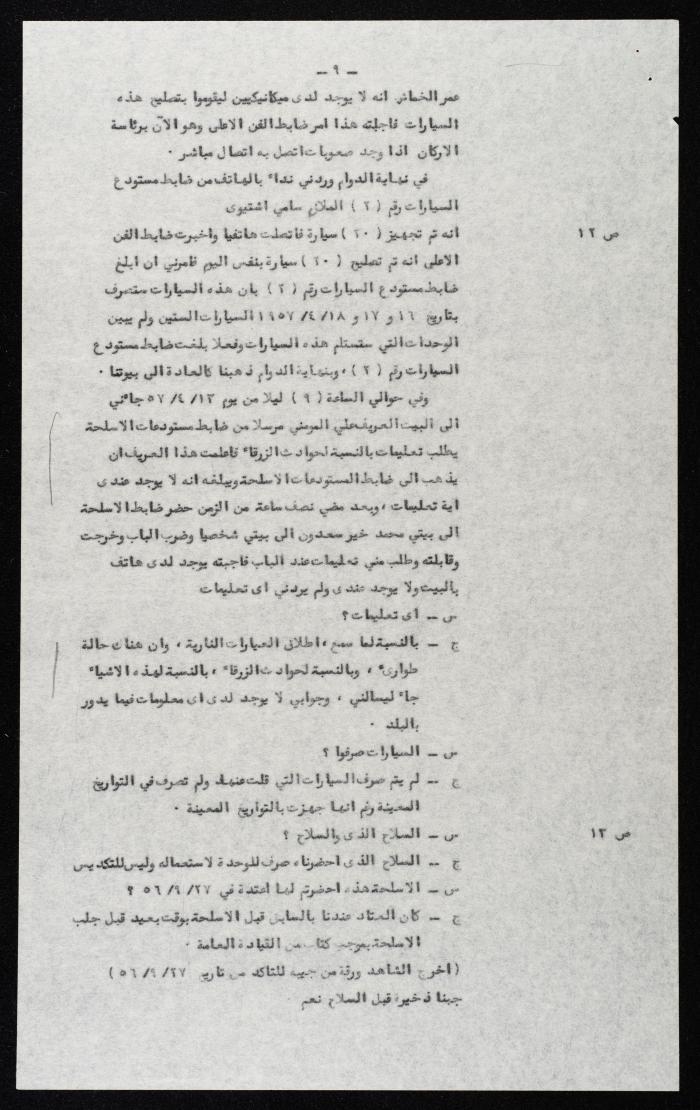 — ٩ —
عمر الخماش انه لا يوجد لدى ميكانيكيين ليقوموا بتصليح هذه
السيارات فاجبته هذا امر ضابط الفن الاعلى وهو الآن برئاسة
الاركان اذا وجد صعوبات اتصل به اتصال مباشر ٠
في نهاية الدوام وردني نداء بالهاتف من ضابط مستودع
السيارات رقم ( ٢ ) الملازم سامي اشتيوى
انه تم تجهيز ( ٢٠ ) سيارة فاتصلت هاتفيا واخبرت ضابط الفن
ص ١٢
الاعلى انه تم تصليح ( ٢٠ ) سيارة بنفس اليوم فامرني ان ابلغ
ضابط مستودع السيارات رقم ( ٢ ) بان هذه السيارات ستصرف
بتاريخ ١٦ و ١٧ و ١٨ /٤/ ١٩٥٧ السيارات الستين ولم يبين
الوحدات التي ستستلم هذه السيارات وفعلا بلغت ضابط مستودع
السيارات رقم ( ٢ ) ، وبنهاية الدوام ذهبنا كالعادة الى بيوتنا ٠
وفي حوالي الساعة ( ٩ ) ليلا من يوم ١٣ /٤/ ٥٧ جائني
الى البيت العريف علي المومني مرسلا من ضابط مستودعات الاسلحة
يطلب تعليمات بالنسبة لحوادث الزرقاء فاعلمت هذا العريف ان
يذهب الى ضابط المستودعات الاسلحة ويبلغه انه لا يوجد عندى
اية تعليمات ، وبعد مضي نصف ساعة من الزمن حضر ضابط الاسلحة
الى بيتي محمد خير سعدون الى بيتي شخصيا وضرب الباب وخرجت
وقابلته وطلب مني تعليمات عند الباب فاجبته يوجد لدى هاتف
بالبيت ولا يوجد عندى ولم يردني اى تعليمات
س — اى تعليمات ؟
ج — بالنسبة لما سمع ، اطلاق العيارات النارية ، وان هناك حالة
طوارىء ، وبالنسبة لحوادث الزرقاء ، بالنسبة لهذه الاشياء
جاء ليسالني ، وجوابي لا يوجد لدى اى معلومات فيما يدور
بالبلد ٠
س — السيارات صرفوا ؟
ج — لم يتم صرف السيارات التي قلت عنها ولم تصرف في التواريخ
المعينة رغم انها جهزت بالتواريخ المعينة ٠
س — السلاح الذى والسلاح ؟
ص ١٣
ج — السلاح الذى احضرناه صرف للوحدة لاستعماله وليس للتكديس
س — الاسلحة هذه احضرتم لها اعتدة في ٢٧ /٩/ ٥٦ ؟
ج — كان العتاد عندنا بالسابق قبل الاسلحة بوقت بعيد قبل جلب
الاسلحة بموجب كتاب من القيادة العامة ٠
( اخرج الشاهد ورقة من جيبه للتاكد من تاريخ ٢٧ /٩/ ٥٦ )
جبنا ذخيرة قبل السلاح نعم